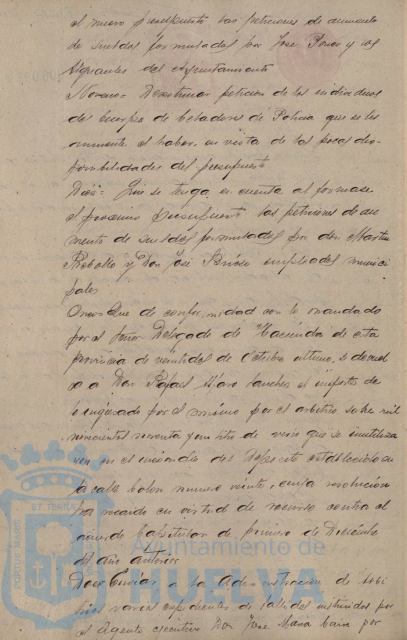 el nuevo presupuesto las peticiones de aumento
de sueldos formuladas por Jose Ponce y los
vigilantes del Ayuntamiento
Noveno= Desestimar peticion de los individuos
del cuerpo de Celadores de Policia que se les
aumente el haber, en vista de las pocas dis-
ponibilidades del presupuesto
Diez= Que se tenga en cuenta al formarse
el proximo presupuesto las peticiones de au
mento de sueldos formuladas por don Martin
Rebollo y Don Jose empleados munici
pales
Once= Que de conformidad con lo mandado
por el Señor Delegado de Hacienda de esta
provincia de veintidos de Octubre ultimo, se devuel
va a Don Rafael Haro Sanchez el importe de
lo ingresado por el mismo por el arbitrio sobre mil
novecientos noventa y un litro de vino que se inutiliza
ron en el incendio del deposito establecido en
la calle Colon numero veinte, cuya resolucion
ha recaido en virtud de recurso contra el
acuerdo Capitular de primero de Diciembre
del año anterior
Doce= Enviar a la Administracion de Arbi
trios varios expedientes de fallidos instruidos por
el Agente ejecutivo Don Jose Maria por
Ayuntamiento de
HUELVA